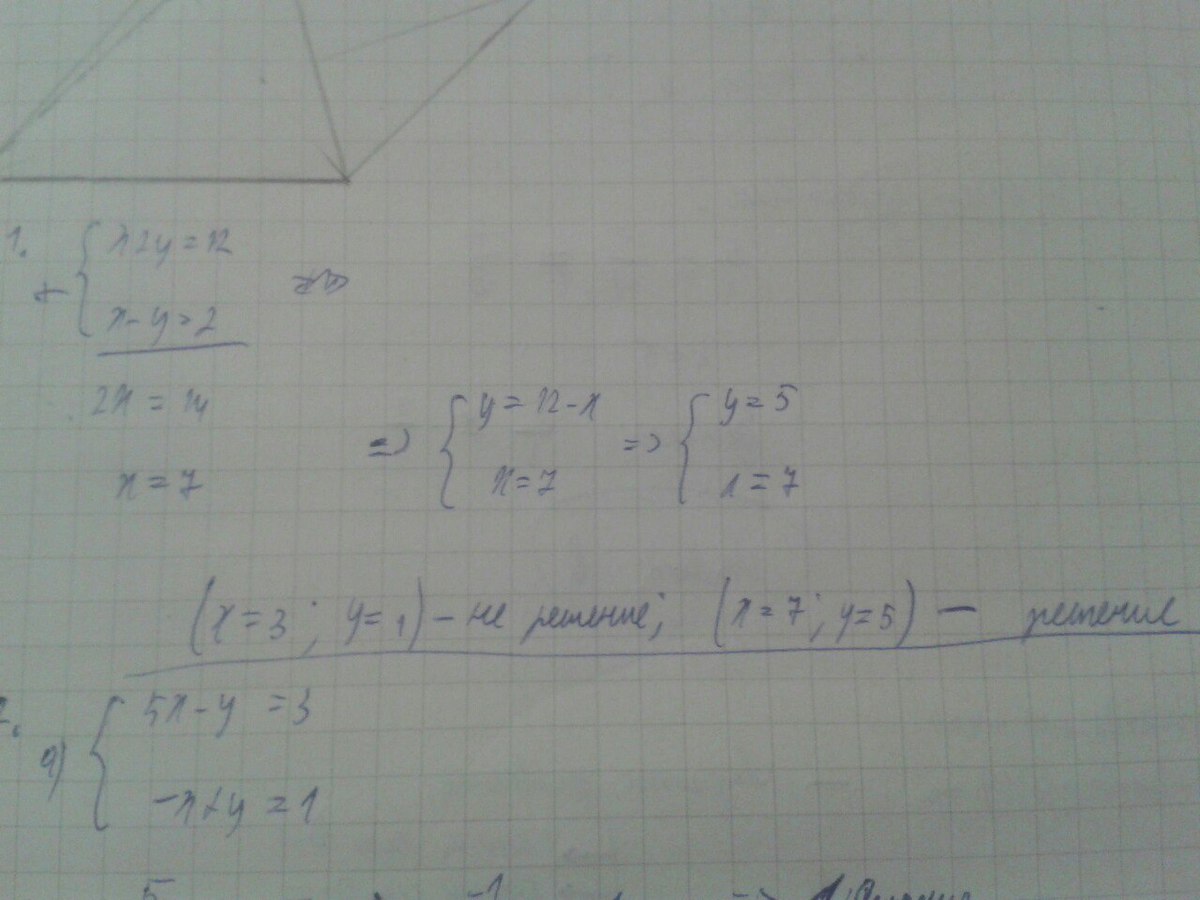 1.
+ { x+y=12
x-y=2
2x = 14
=> { y = 12-x => { y = 5
x = 7
x=7
x = 7
(x=3; y=1) - не решение; (x=7; y=5) - решение
2.
а) { 5x-y = 3
-x+y = 1